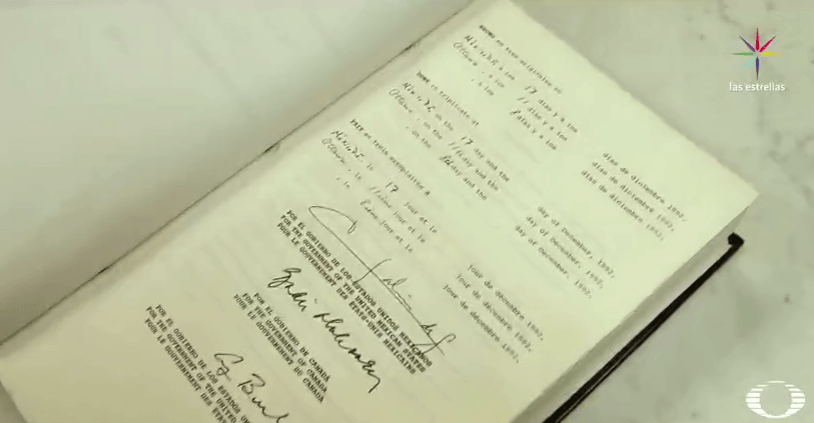 las estrellas
HECHO en tres originales en
México DF, a los 17 días y a los días de diciembre 1992,
Ottawa, a los 11 días y a los días de diciembre 1992,
, a los días y a los días de diciembre 1992.
DONE in triplicate at
México DF, on the 17 day and the day of December, 1992,
Ottawa, on the 11th day and the day of December, 1992,
, on the day and the day of December, 1992.
FAIT en triple exemplaire à
México DF, le 17 jour et le jour de décembre 1992,
Ottawa, le 11ième jour et le jour de décembre 1992,
, le jour et le jour de décembre 1992.
POR EL GOBIERNO DE LOS ESTADOS UNIDOS MEXICANOS
FOR THE GOVERNMENT OF THE UNITED MEXICAN STATES
POUR LE GOUVERNEMENT DES ÉTATS-UNIS MEXICAINS
POR EL GOBIERNO DE CANADA
FOR THE GOVERNMENT OF CANADA
POUR LE GOUVERNEMENT DU CANADA
POR EL GOBIERNO DE LOS ESTADOS
FOR THE GOVERNMENT OF THE UNITED
POUR LE GOUVERNEMENT DES ÉTATS